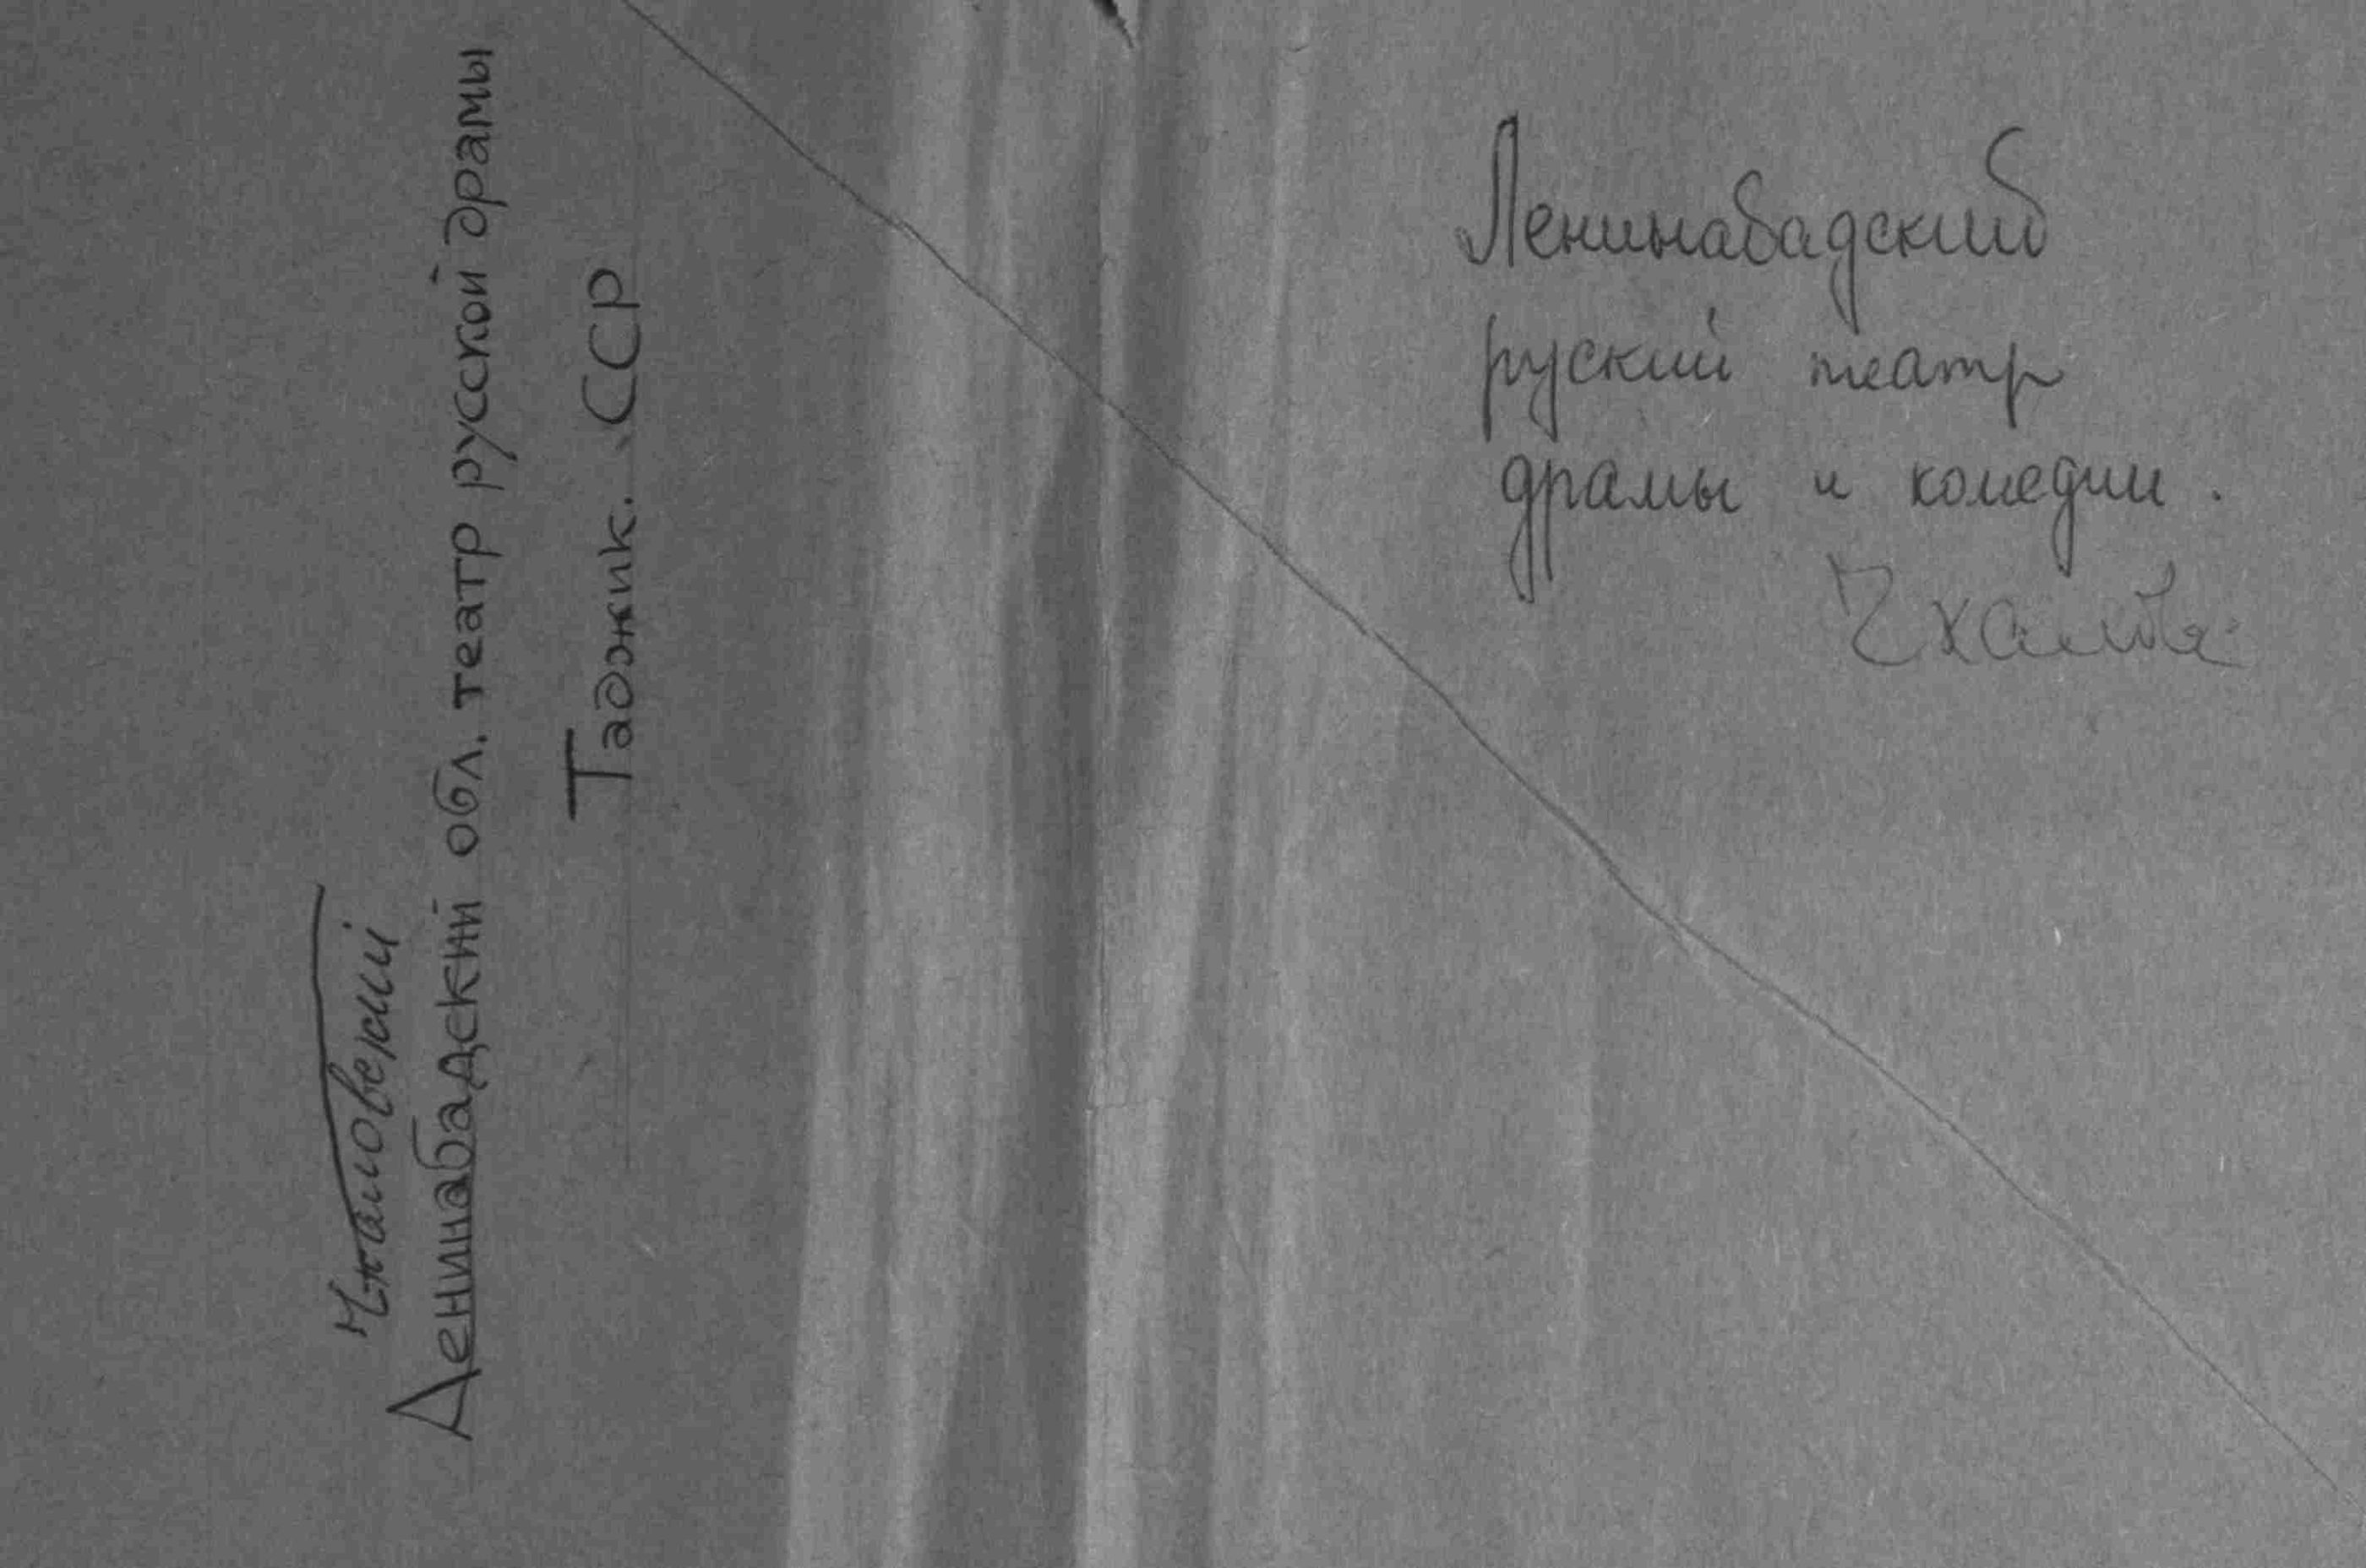 Чкаловский
Ленинабадский обл. театр русской драмы
Таджик. ССР
Ленинабадский
руский театр
драмы и комедии.